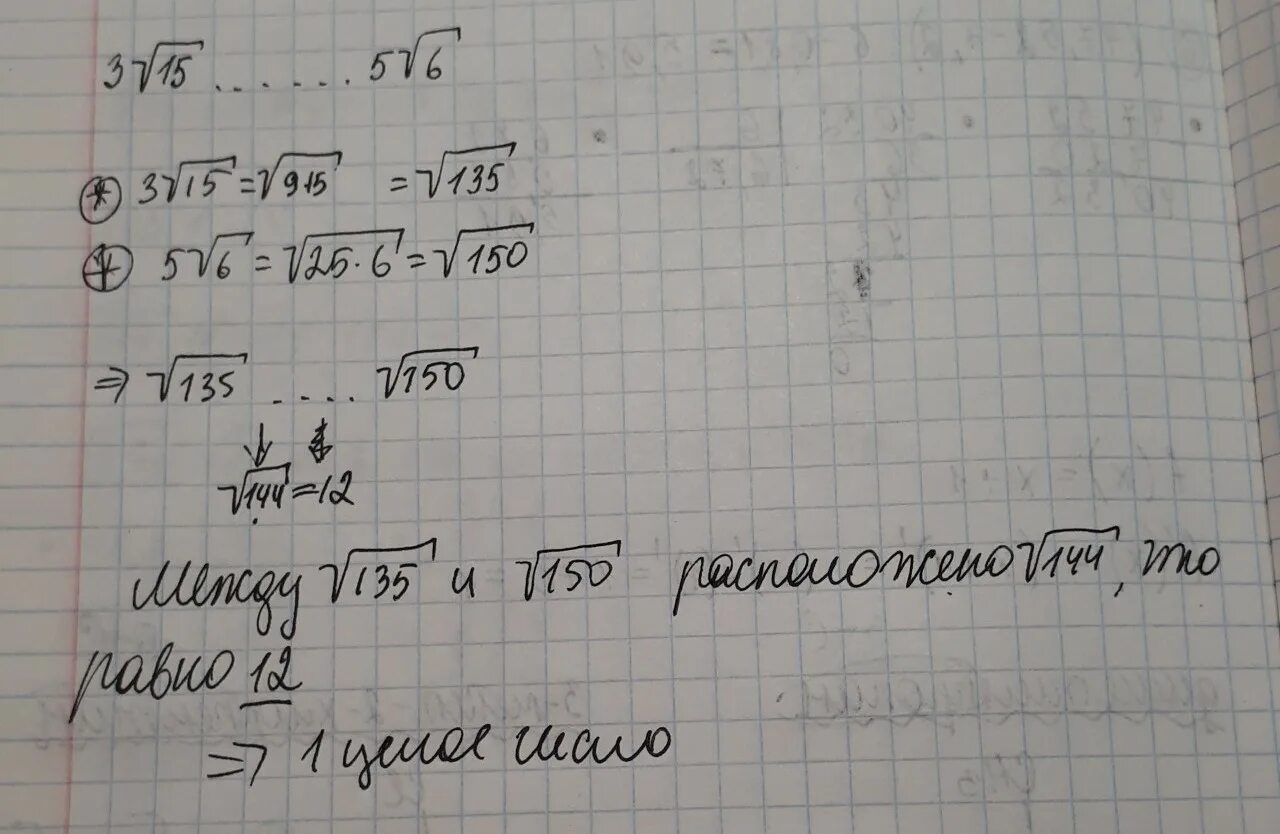 3√15 . . . . . . 5√6
⊛ 3√15 = √9·15 = √135
⊛ 5√6 = √25·6 = √150
⇒ √135 . . . . √150
↓ ↓
√144 = 12
Между √135 и √150 расположено √144, что
равно 12
⇒ 1 целое число